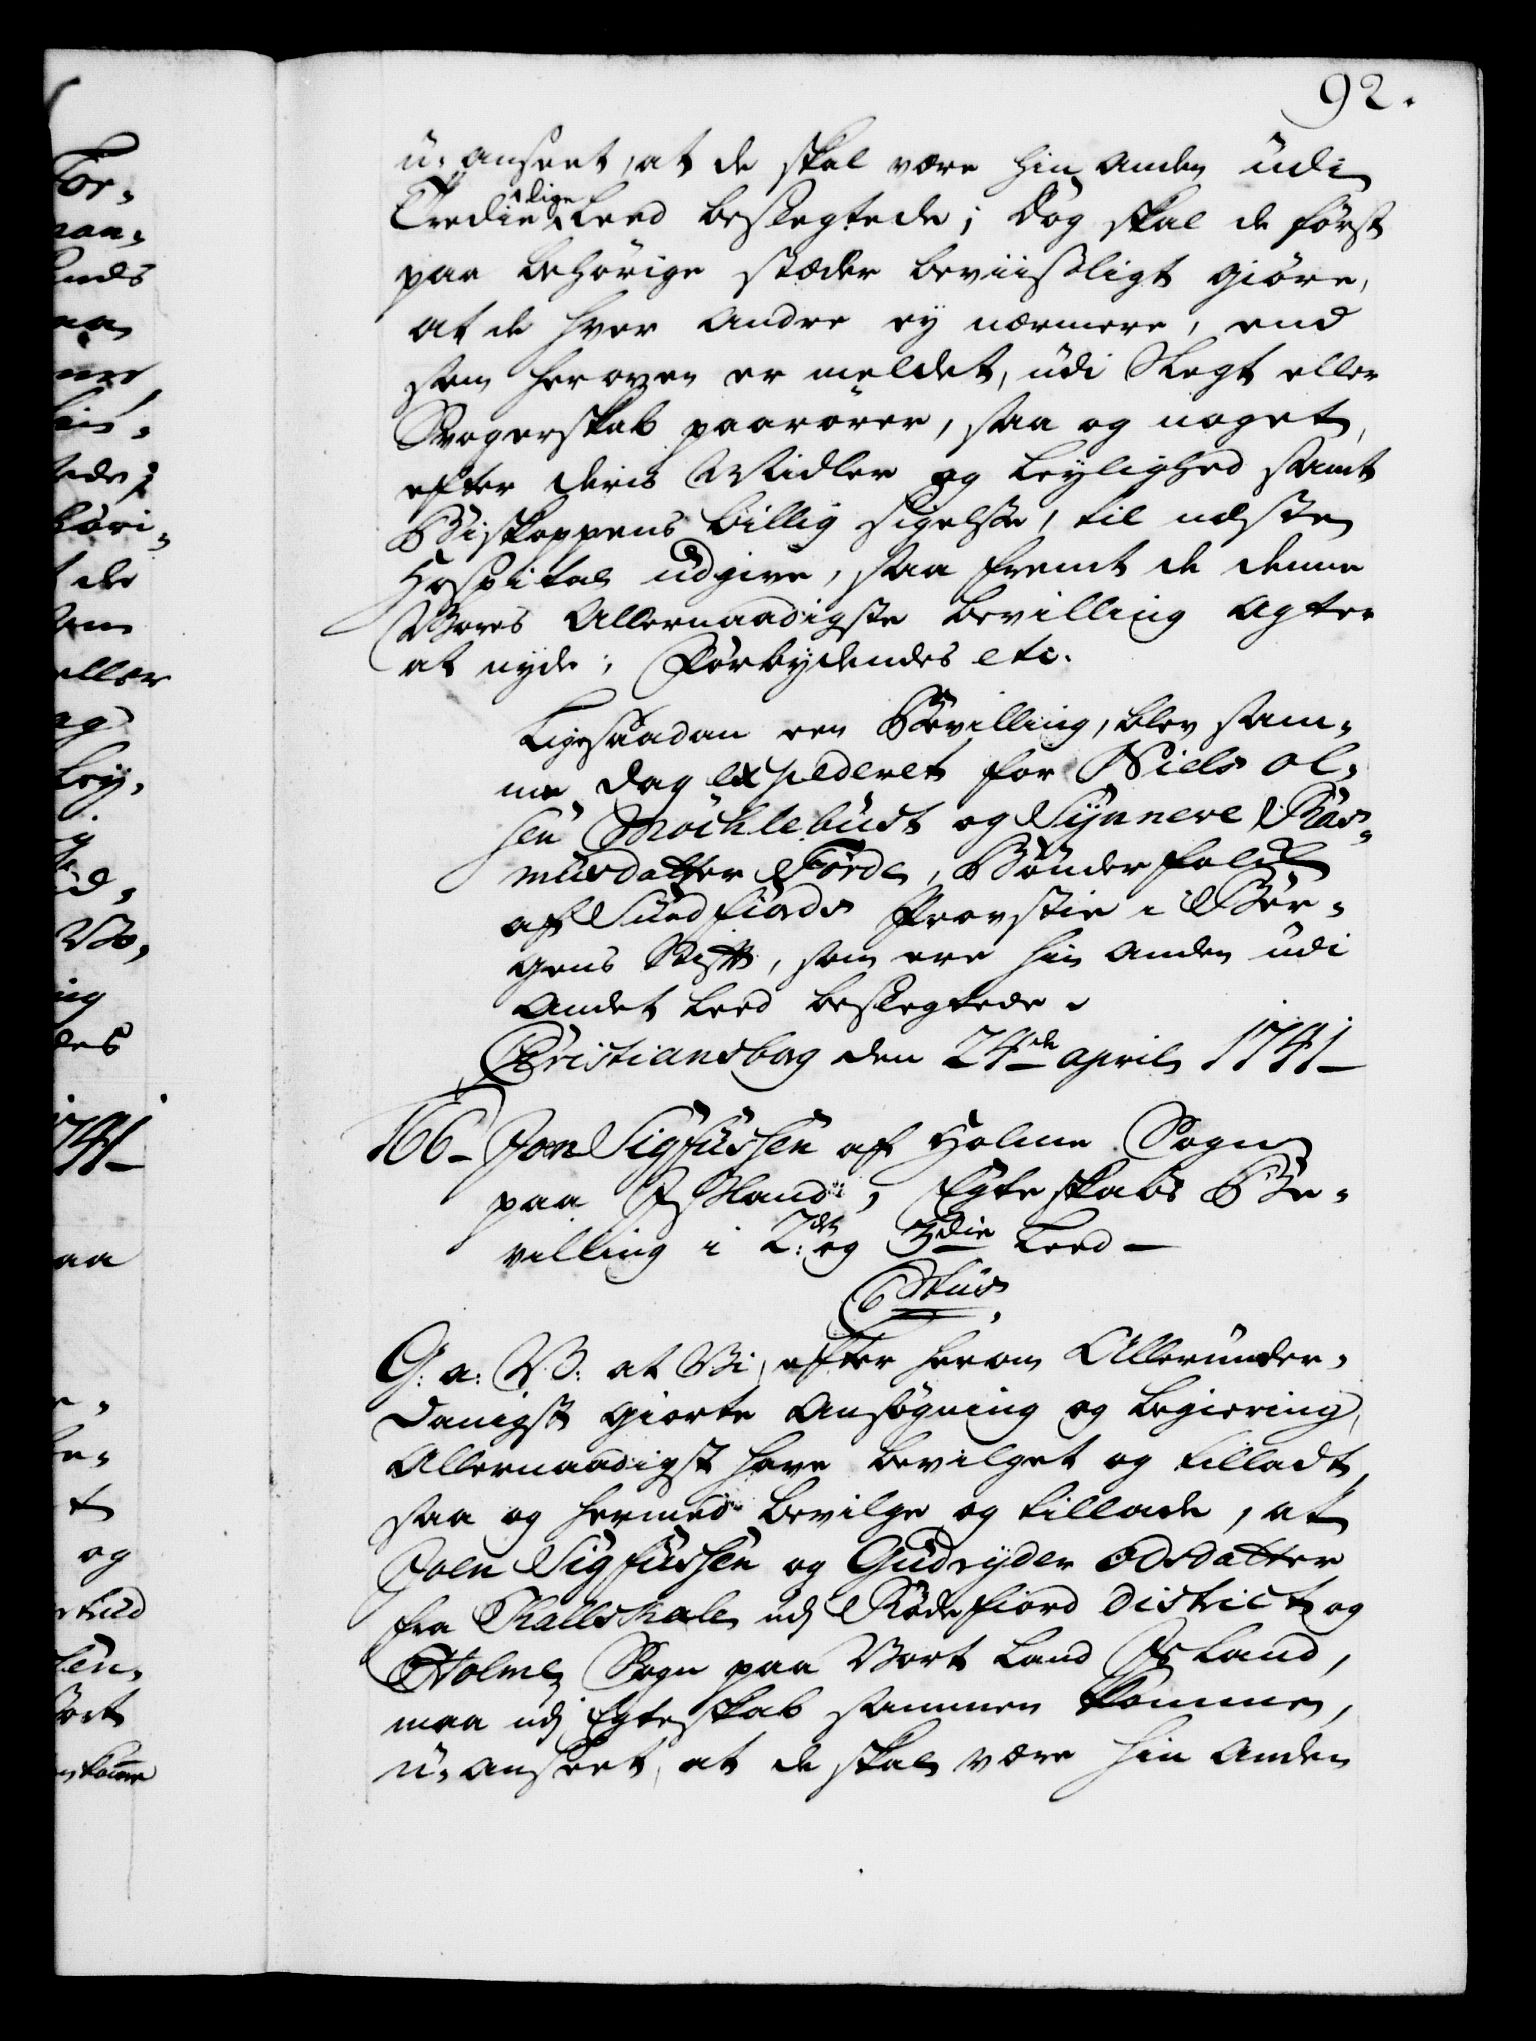 92.
u-anseet, at de skal være hin anden udi
Tredie dige Leed beslegtede; Dog skal de först
paa behörige stæder beviisligt giöre,
at de hver andre ey nærmere, end
som heroven er meldet, udi Slegt eller
Svogerskab paarörer, saa og noget,
efter deris Midler og Leylighed samt
Biskoppens billig sigelse, til næste
Hospital udgive, saa fremt de denne
Vores Allernaadigste Bevilling agter
at nyde; Forbydendes etc.
Ligesaadan een Bevilling, blev sam-
me Dag expederet for Niels Ol-
sen Möchlebust og Synneve Ras-
musdatter Förde, Bönderfolk
af Sundfiords Provstie i Ber-
gens Stift, som ere hin anden udi
Andet Leed beslegtede.
Christiansborg den 24de april 1741
166 Joen Sigfussen af Holme Sogn
paa Island, Egteskabs Be-
villing i 2det og 3die Leed
G: a: V: at Vi, efter herom Allerunder-
danigst giorte Ansögning og begiering,
Allernaadigst have bevilget og tilladt,
saa og hermed bevilge og tillade, at
Joen Sigfussen og Gudryder Odsdatter
fra Kallskale udj Rödefiord District og
Holme Sogn paa Vort Land Island,
maa udj Egteskab sammen komme,
u-anseet, at de skal være hin anden